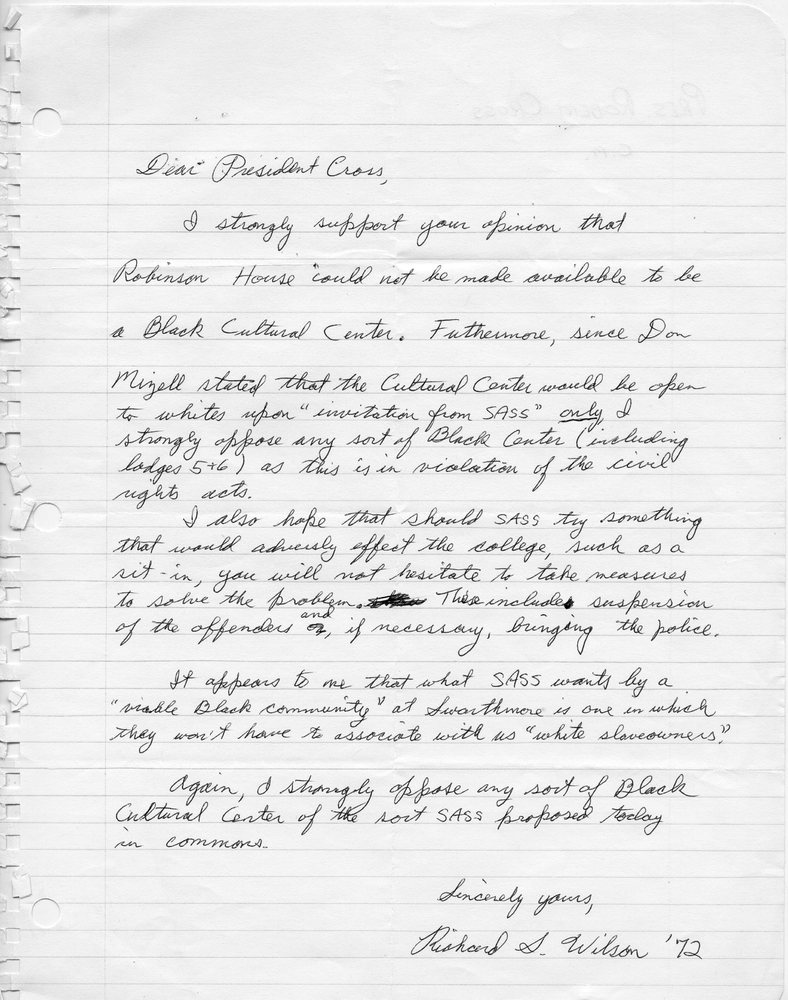 Dear President Cross,
I strongly support your opinion that
Robinson House could not be made available to be
a Black Cultural Center. Futhermore, since Don
Mizell stated that the Cultural Center would be open
to whites upon "invitation from SASS" only, I
strongly oppose any sort of Black Center (including
lodges 5+6) as this is in violation of the civil
rights acts.
I also hope that should SASS try something
that would adversly effect the college, such as a
sit-in, you will not hesitate to take measures
to solve the problem. This includes suspension
of the offenders and, if necessary, bringing the police.
It appears to me that what SASS wants by a
"viable Black community" at Swarthmore is one in which
they won't have to associate with us "white slaveowners".
Again, I strongly oppose any sort of Black
Cultural Center of the sort SASS proposed today
in commons.
Sincerely yours,
Richard S. Wilson '72